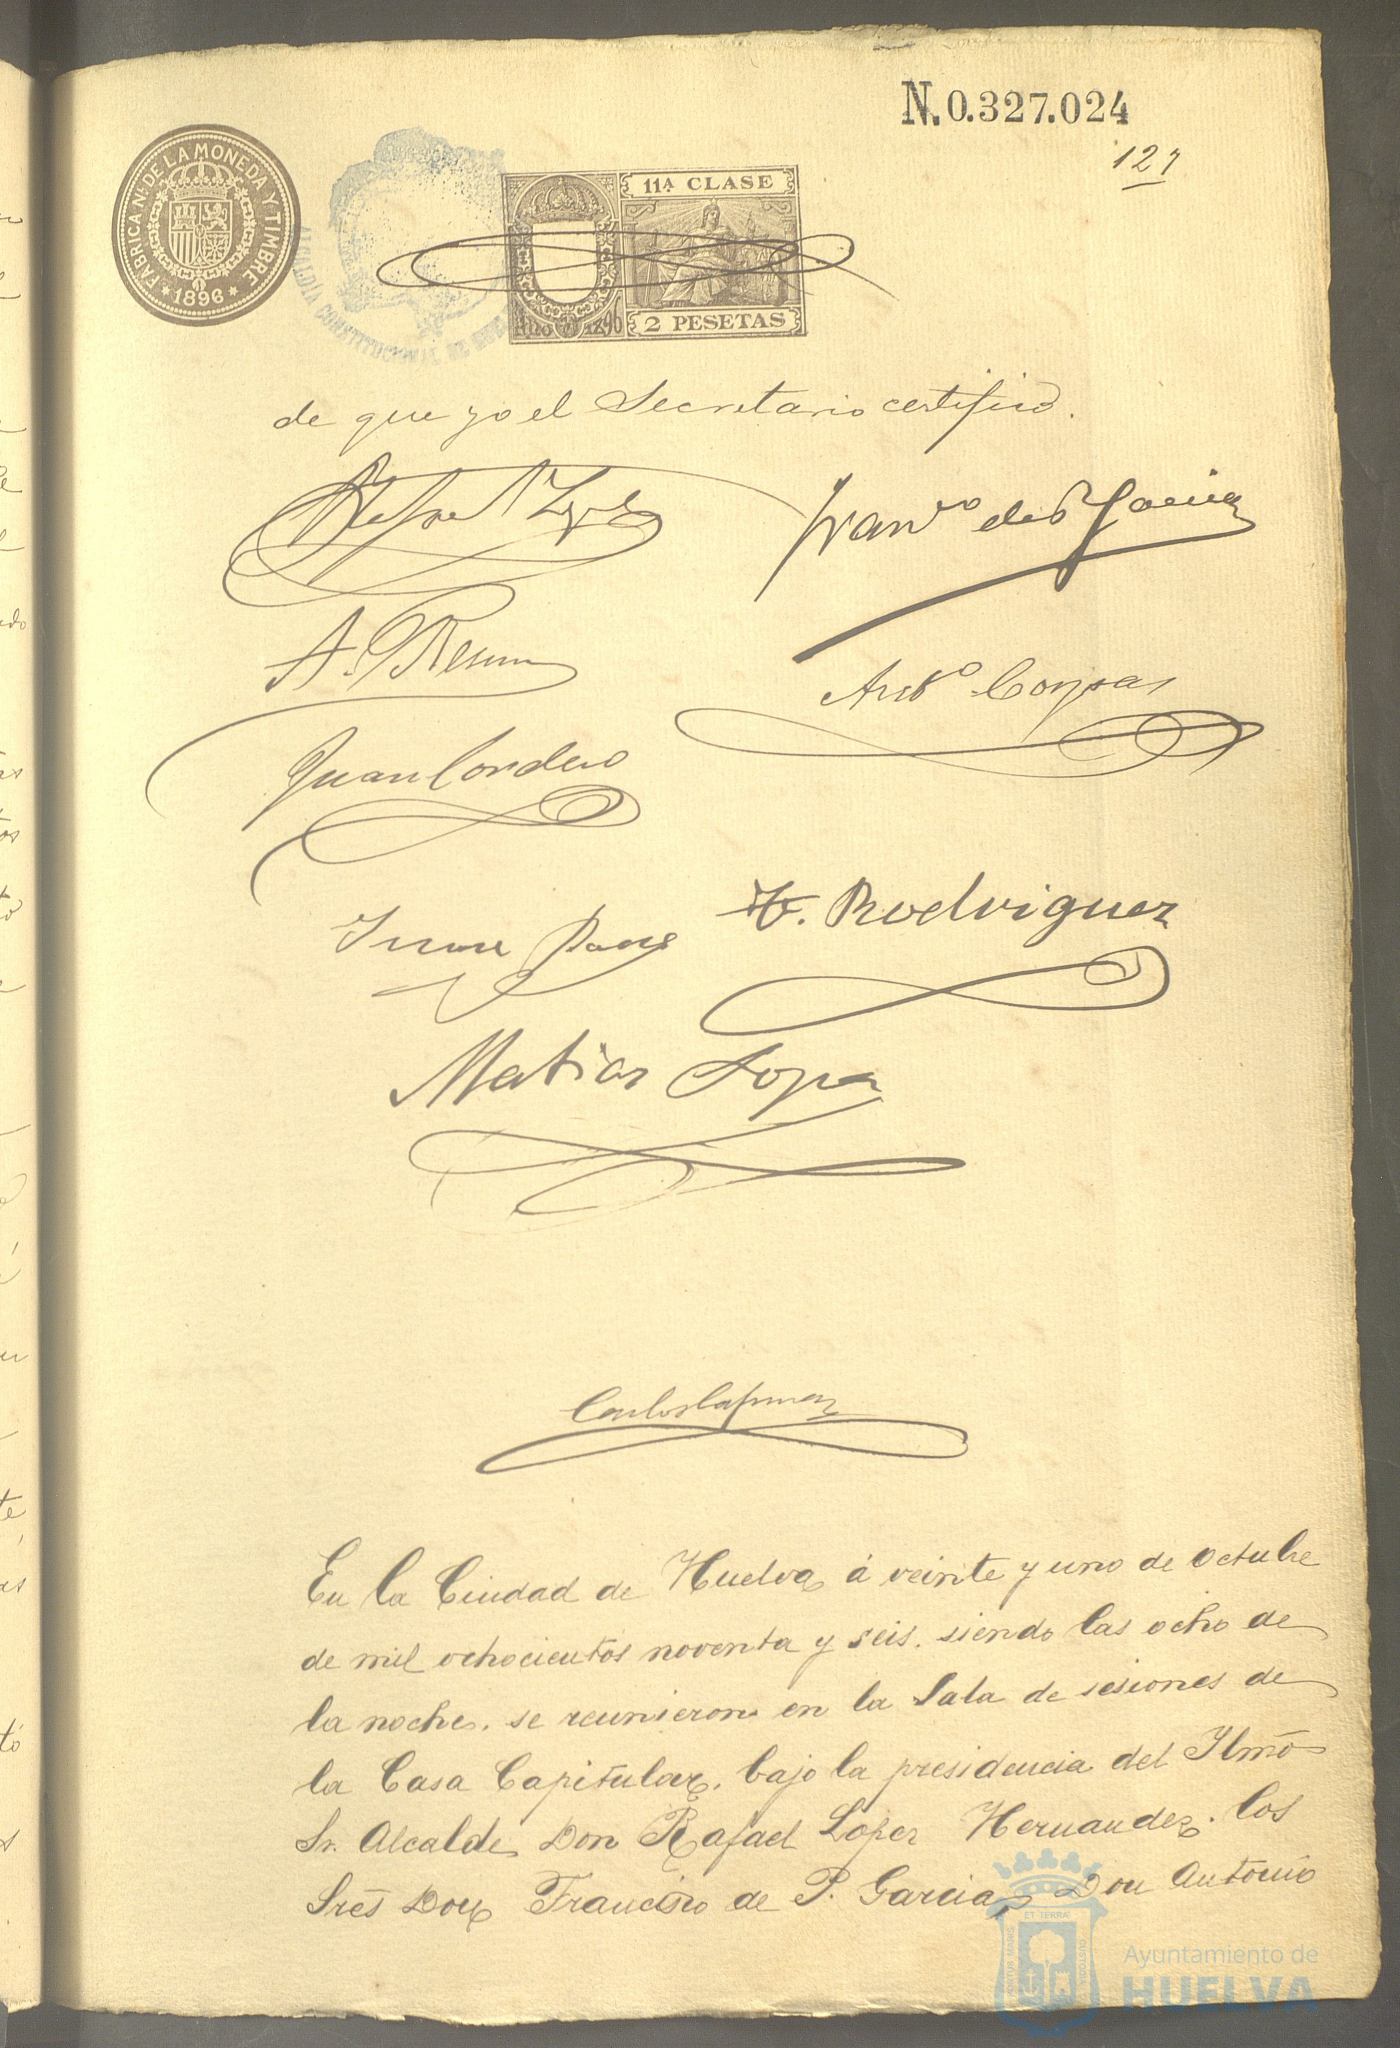 N.0.327.024
127
FABRICA Nl. DE LA MONEDA Y TIMBRE
* 1896 *
ALCALDIA CONSTITUCIONAL DE
11ª CLASE
Año 1896
2 PESETAS
de que yo el Secretario certifico.
Rafael
Franco de P Garcia
A.
Anto Corpas
Juan Cordero
F. Rodriguez
Matias Lopez
Carlos
En la Ciudad de Huelva á veinte y uno de Octubre
de mil ochocientos noventa y seis. siendo las ocho de
la noche. se reunieron en la Sala de sesiones de
la Casa Capitular. bajo la presidencia del Ylmo
Sr. Alcalde Don Rafael Lopez Hernandez. los
Sres Don Francisco de P. Garcia, Don Antonio
ET TERRÆ
PORTUS MARIS
CUSTODIA
Ayuntamiento de
HUELVA